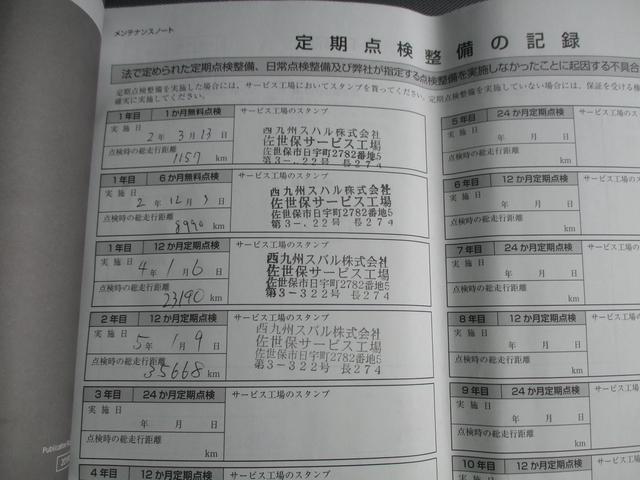 メンテナンスノート
定期点検整備の記録
法で定められた定期点検整備、日常点検整備及び弊社が指定する点検整備を実施しなかったことに起因する不具合
定期点検整備を実施した場合には、サービス工場においてスタンプを貰ってください。定期点検整備を実施していない場合には、保証を受ける権
確実に実施してください。
1年目 1か月無料点検
実施日
2年 3月 13日
点検時の総走行距離
1157 km
サービス工場のスタンプ
西九州スバル株式会社
佐世保サービス工場
佐世保市日宇町2782番地5
第3-.22号 長274
1年目 6か月無料点検
実施日
2年 12月 日
点検時の総走行距離
8990 km
サービス工場のスタンプ
西九州スバル株式会社
佐世保サービス工場
佐世保市日宇町2782番地5
第3-.22号 長274
1年目 12か月定期点検
実施日
4年 1月 6日
点検時の総走行距離
23190 km
サービス工場のスタンプ
西九州スバル株式会社
佐世保サービス工場
佐世保市日宇町2782番地5
第3-322号 長274
2年目 12か月定期点検
実施日
5年 1月 9日
点検時の総走行距離
35668 km
サービス工場のスタンプ
西九州スバル株式会社
佐世保サービス工場
佐世保市日宇町2782番地5
第3-322号 長274
3年目 24か月定期点検
実施日
年 月 日
点検時の総走行距離
km
サービス工場のスタンプ
4年目 12か月定期点検
サービス工場のスタンプ
5年目 24か月定期点検
実施日
年 月 日
点検時の総走行距離
km
6年目 12か月定期点検
実施日
年 月 日
点検時の総走行距離
km
7年目 24か月定期点検
実施日
年 月 日
点検時の総走行距離
km
8年目 12か月定期点検
実施日
年 月 日
点検時の総走行距離
km
9年目 24か月定期点検
実施日
年 月 日
点検時の総走行距離
km
10年目 12か月定期点検